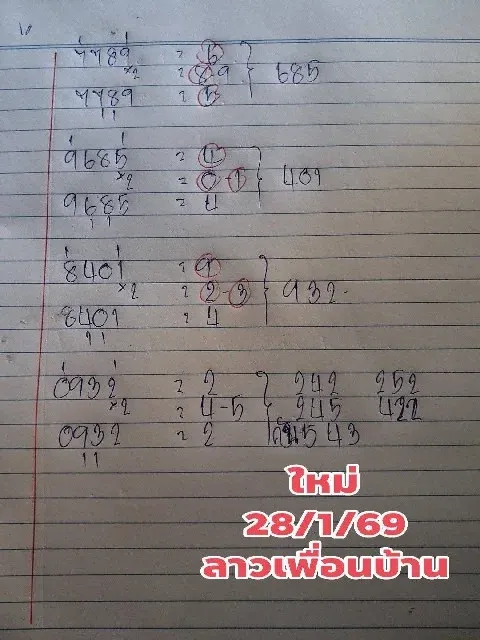 7789 = 5
×2 = 8-9 } 685
7789 = 5
9685 = 4
×2 = 0-1 } 401
9685 = 4
8401 = 9
×2 = 2-3 } 932
8401 = 4
0932 = 2 } 242 252
×2 = 4-5 245 422
0932 = 2 543
ใหม่
28/1/69
ลาวเพื่อนบ้าน